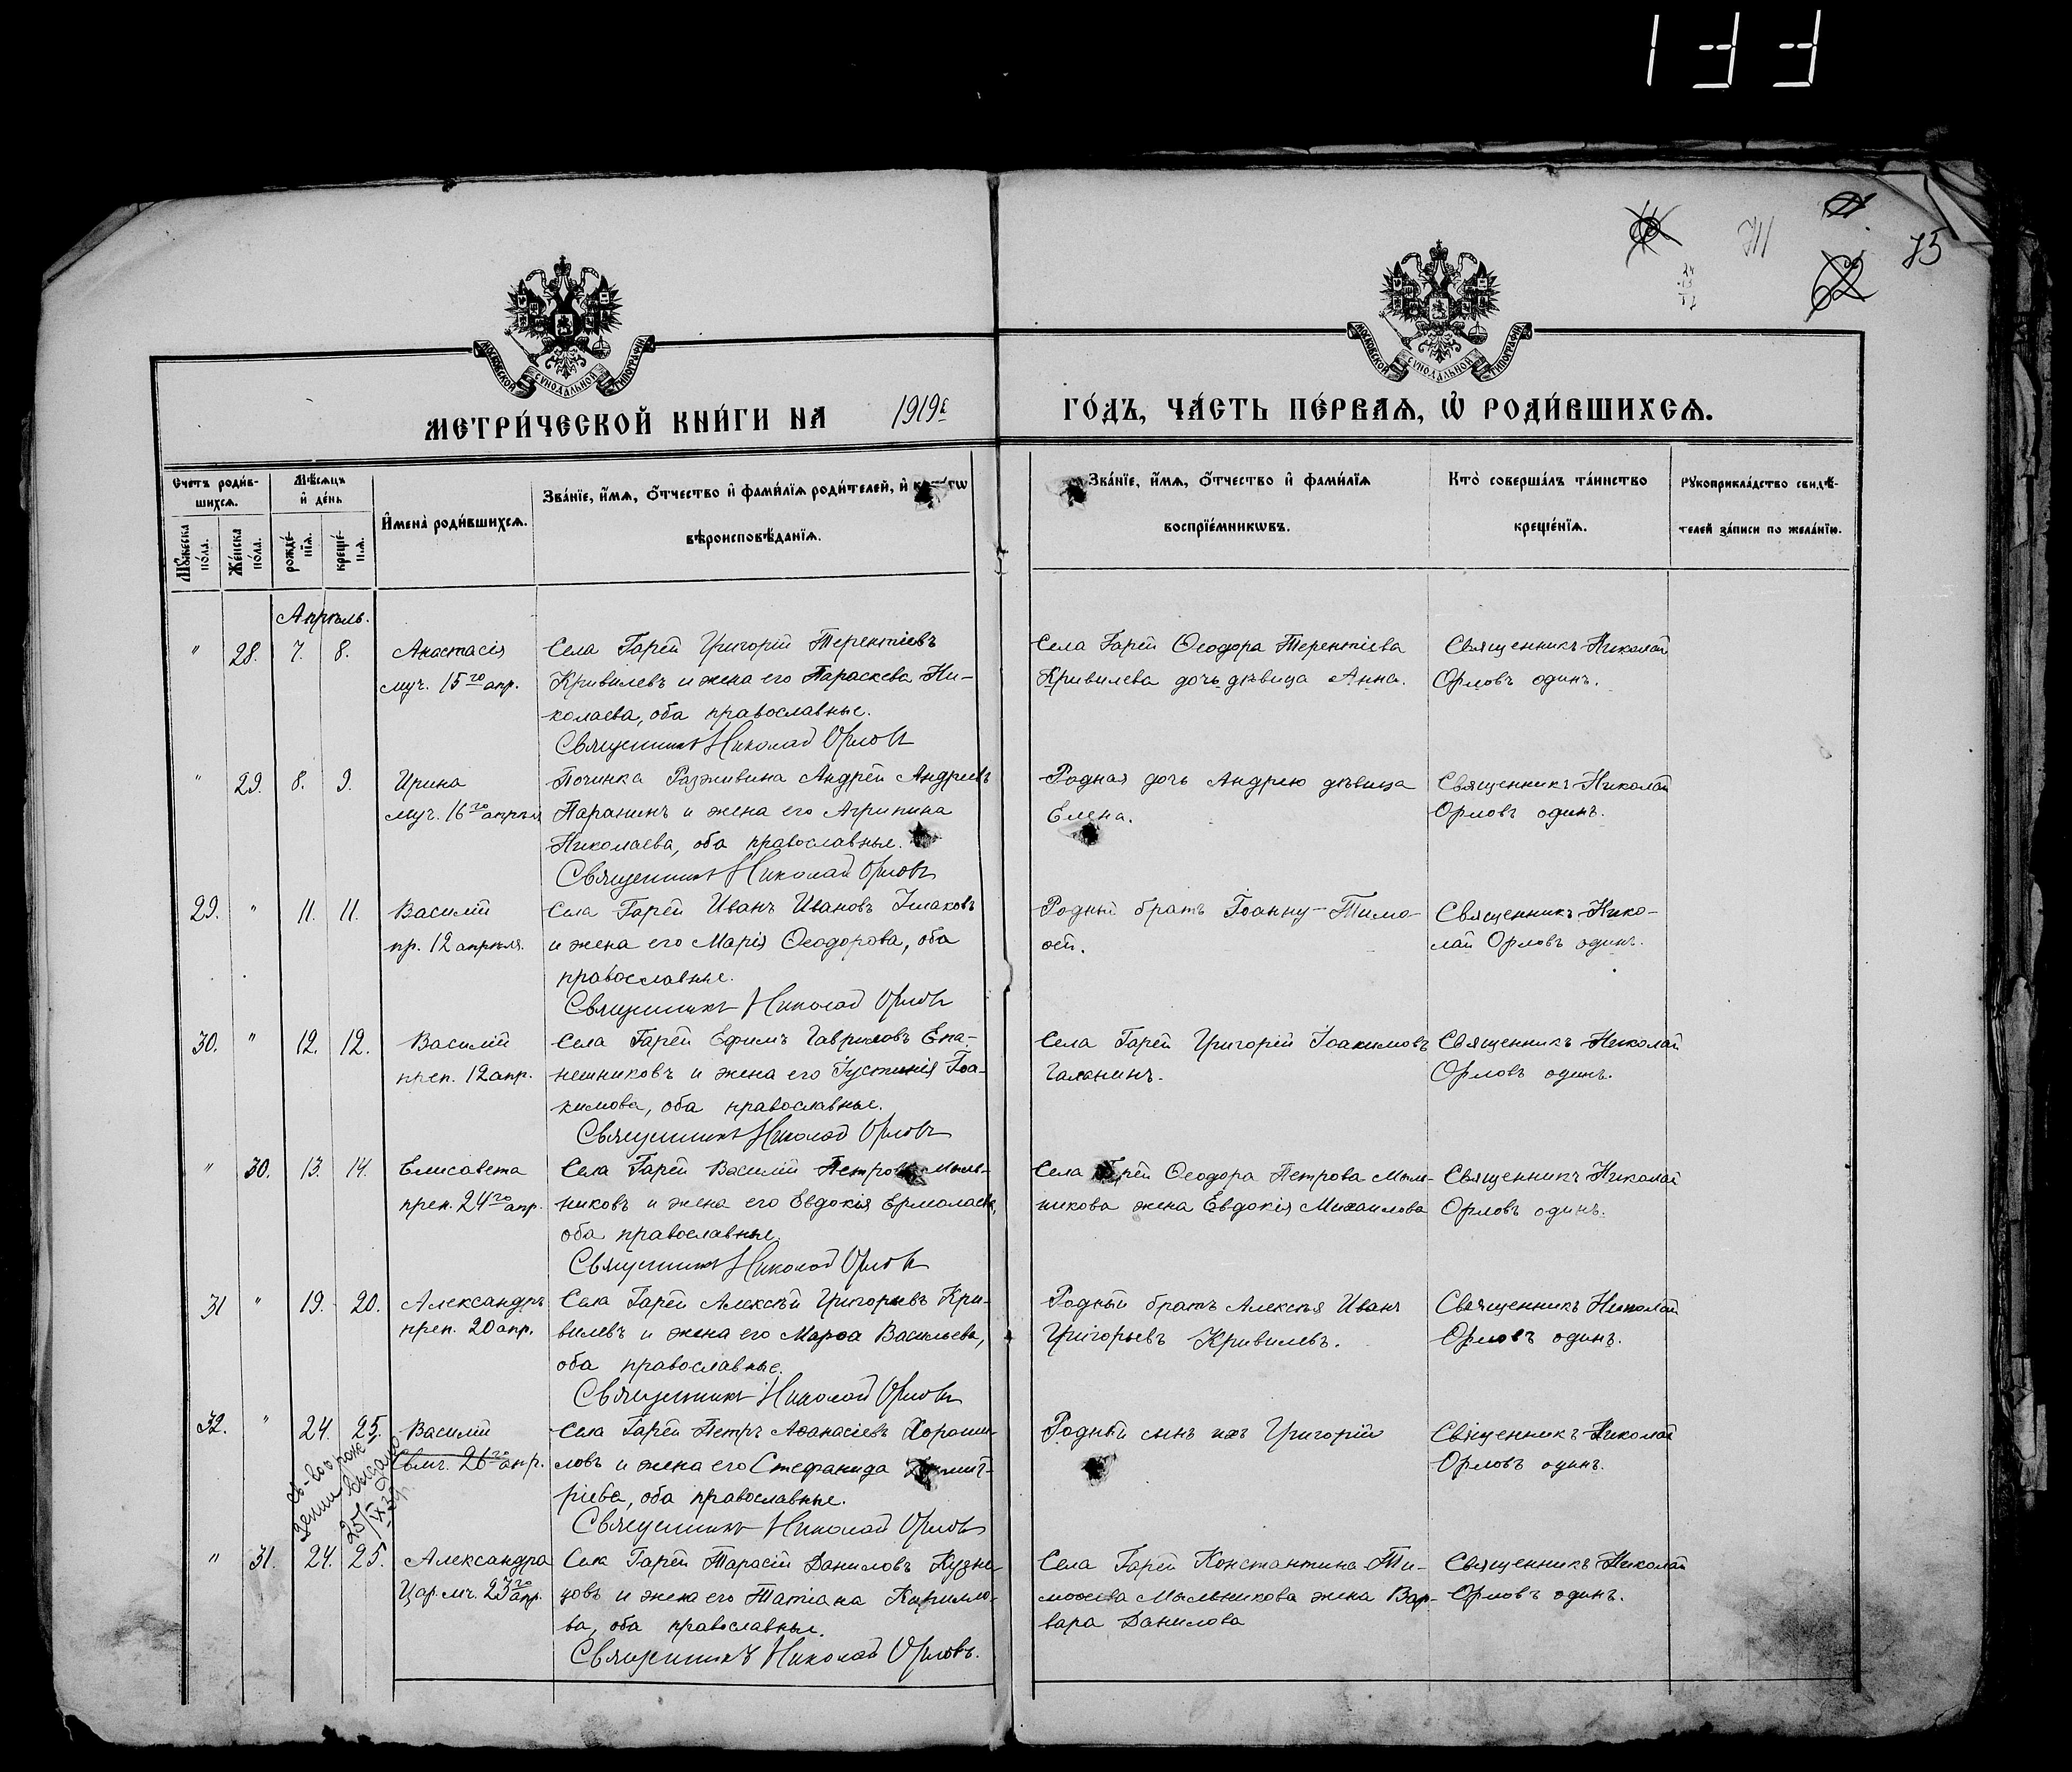 133
75
62
МОСКОВСКОЙ СѴНОДАЛЬНОЙ ТИПОГРАФІИ
МОСКОВСКОЙ СѴНОДАЛЬНОЙ ТИПОГРАФІИ
МЕТРИ́ЧЕСКОЙ КНИ́ГИ НА 1919й ГО́ДЪ, ЧА́СТЬ ПЕ́РВАѦ, Ѽ РОДИ́ВШИХСѦ.
Счетъ роди́в-
шихсѧ.
Мꙋжеска по́ла.
Же́нска по́ла.
Мѣ́сѧцъ
и҆ де́нь
рожде́-нїѧ.
креще́-нїѧ.
И҆мена̀ роди́вшихсѧ.
Зва́нїе, и҆́мѧ, ѻ҆́тчество и҆ фами́лїѧ роди́телей, и҆
вѣроисповѣ́данїѧ.
Зва́нїе, и҆́мѧ, ѻ҆́тчество и҆ фами́лїѧ
воспрїе́мникѡвъ.
Кто̀ соверша́лъ та́инство
креще́нїѧ.
Рꙋкоприкла́дство свидѣ́-
телей за́писи по жела́нїю.
Апрѣль.
" 28. 7. 8. Анастасія
муч. 15го апр.
Села Гарей Григорій Терентіевъ
Кривилевъ и жена его Параскева Ни-
колаева, оба православные.
Священникъ Николай Орловъ
Села Гарей Ѳеодора Терентіева
Кривилева дочь дѣвица Анна.
Священникъ Николай
Орловъ одинъ.
" 29. 8. 9. Ирина
муч. 16го апрѣля
Починка Разживина Андрей Андреевъ
Паранинъ и жена его Агрипина
Николаева, оба православные.
Священникъ Николай Орловъ
Родная дочь Андрею дѣвица
Елена.
Священникъ Николай
Орловъ одинъ.
29. " 11. 11. Василій
пр. 12 апрѣля.
Села Гарей Иванъ Ивановъ
и жена его Марія Ѳеодорова, оба
православные.
Священникъ Николай Орловъ
Родный братъ Іоанну - Тимо-
ѳей.
Священникъ Нико-
лай Орловъ одинъ.
30. " 12. 12. Василій
преп. 12 апр.
Села Гарей Ефимъ Гавриловъ Епа-
нешниковъ и жена его Іустинія Іоа-
кимова, оба православные.
Священникъ Николай Орловъ
Села Гарей Григорій Іоакимовъ
Галанинъ.
Священникъ Николай
Орловъ одинъ.
" 30. 13. 14. Елисавета
преп. 24го апр.
Села Гарей Василій Петровъ Мыль-
никовъ и жена его Евдокія Ермолаева,
оба православные.
Священникъ Николай Орловъ
Села Гарей Ѳеодора Петрова Мыль-
никова жена Евдокія Михаилова
Священникъ Николай
Орловъ одинъ.
31 " 19. 20. Александръ
преп. 20 апр.
Села Гарей Алексѣй Григорьевъ Кри-
вилевъ и жена его Марѳа Васильева,
оба православные.
Священникъ Николай Орловъ
Родный братъ Алексѣя Иванъ
Григорьевъ Кривилевъ.
Священникъ Николай
Орловъ одинъ.
32. " 24. 25. Василій
Свмч. 26го апр.
св-во о рож-
дении выдано
25/IX 39г.
Села Гарей Петръ Аѳанасіевъ Хороши-
ловъ и жена его Стефанида Димит-
ріева, оба православные.
Священникъ Николай Орловъ
Родный сынъ ихъ Григорій
Священникъ Николай
Орловъ одинъ.
" 31. 24. 25. Александра
Цар. мч. 23го апр.
Села Гарей Тарасій Даниловъ Кузне-
цовъ и жена его Татіана Кирилло-
ва, оба православные.
Священникъ Николай Орловъ.
Села Гарей Константина Ти-
моѳеева Мыльникова жена Вар-
вара Данилова
Священникъ Николай
Орловъ одинъ.